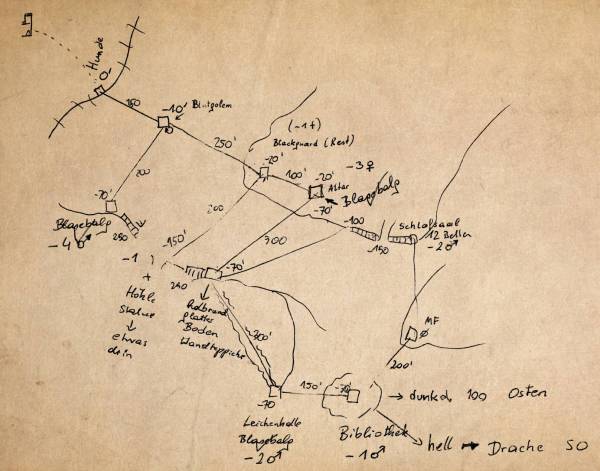 Hunde
150
-10'
Blutgolem
250'
(-1+)
Blackguard (Rest)
-20'
100'
-20'
-3♀
Altar
Blagobalg
200
-70'
200
-70'
-100
Schlafsaal
12 Betten
-2♂
150
Blagobalg
-4♂
250
-150'
300
-1
+
250
-70'
Höhle
Statue
↓
etwas
drin
Boden
Wandteppiche
300'
MF
200'
-70
150'
-70'
→ dunkel 100 Osten
Leichenhalle
Blagobalg
-2♂
Bibliothek
-1♂
hell → Drache SO